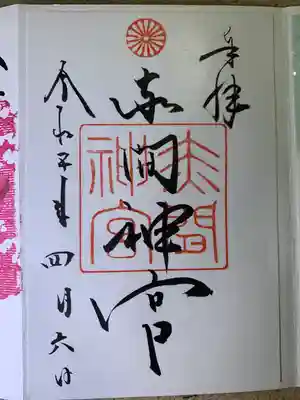 奉拝
赤間神宮
赤間
神宮
令和五年四月六日